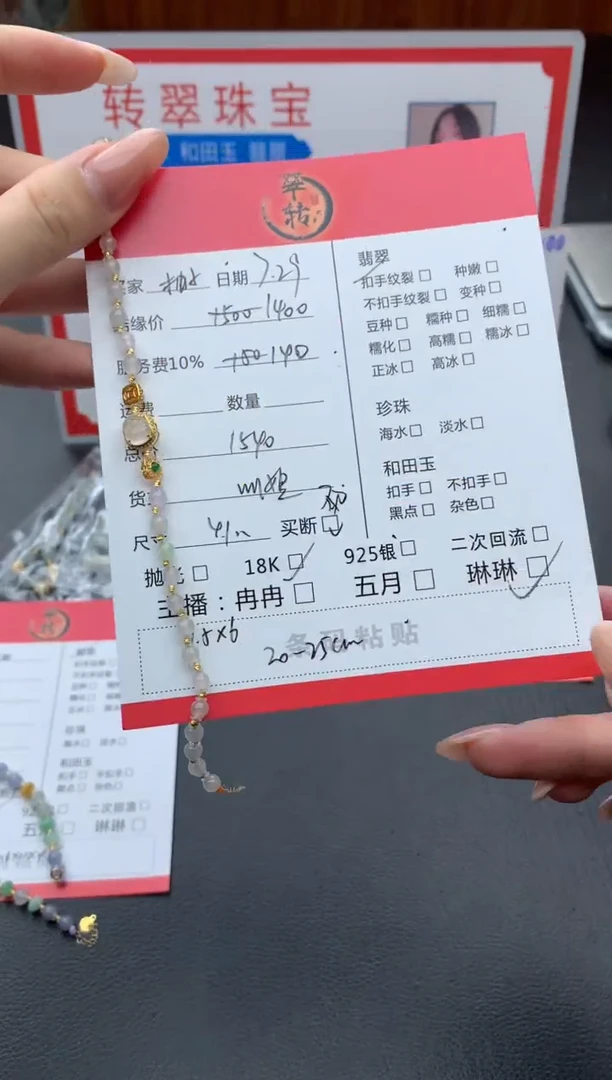 转翠珠宝
和田玉 翡翠
翠转
家 日期 7.29
缘价 1500 1400
服务费10% 150 140
运费 数量
总价 1540
货
尺寸 买断□
抛光□ 18K□ 925银□ 二次回流□
主播：冉冉□ 五月□ 琳琳□
条码粘贴
20-25cm
翡翠
扣手纹裂□ 种嫩□
不扣手纹裂□ 变种□
豆种□ 糯种□ 细糯□
糯化□ 高糯□ 糯冰□
正冰□ 高冰□
珍珠
海水□ 淡水□
和田玉
扣手□ 不扣手□
黑点□ 杂色□
和田玉
扣手□ 不扣手□
黑点□ 杂色□
二次回流□
五月 琳琳□